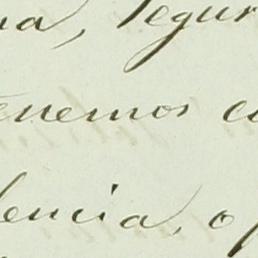 na, Segur
enemos co
lencia, o